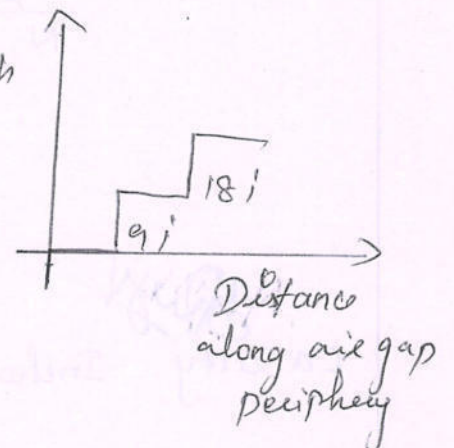 18 i
9 i
Distance
along air gap
periphery